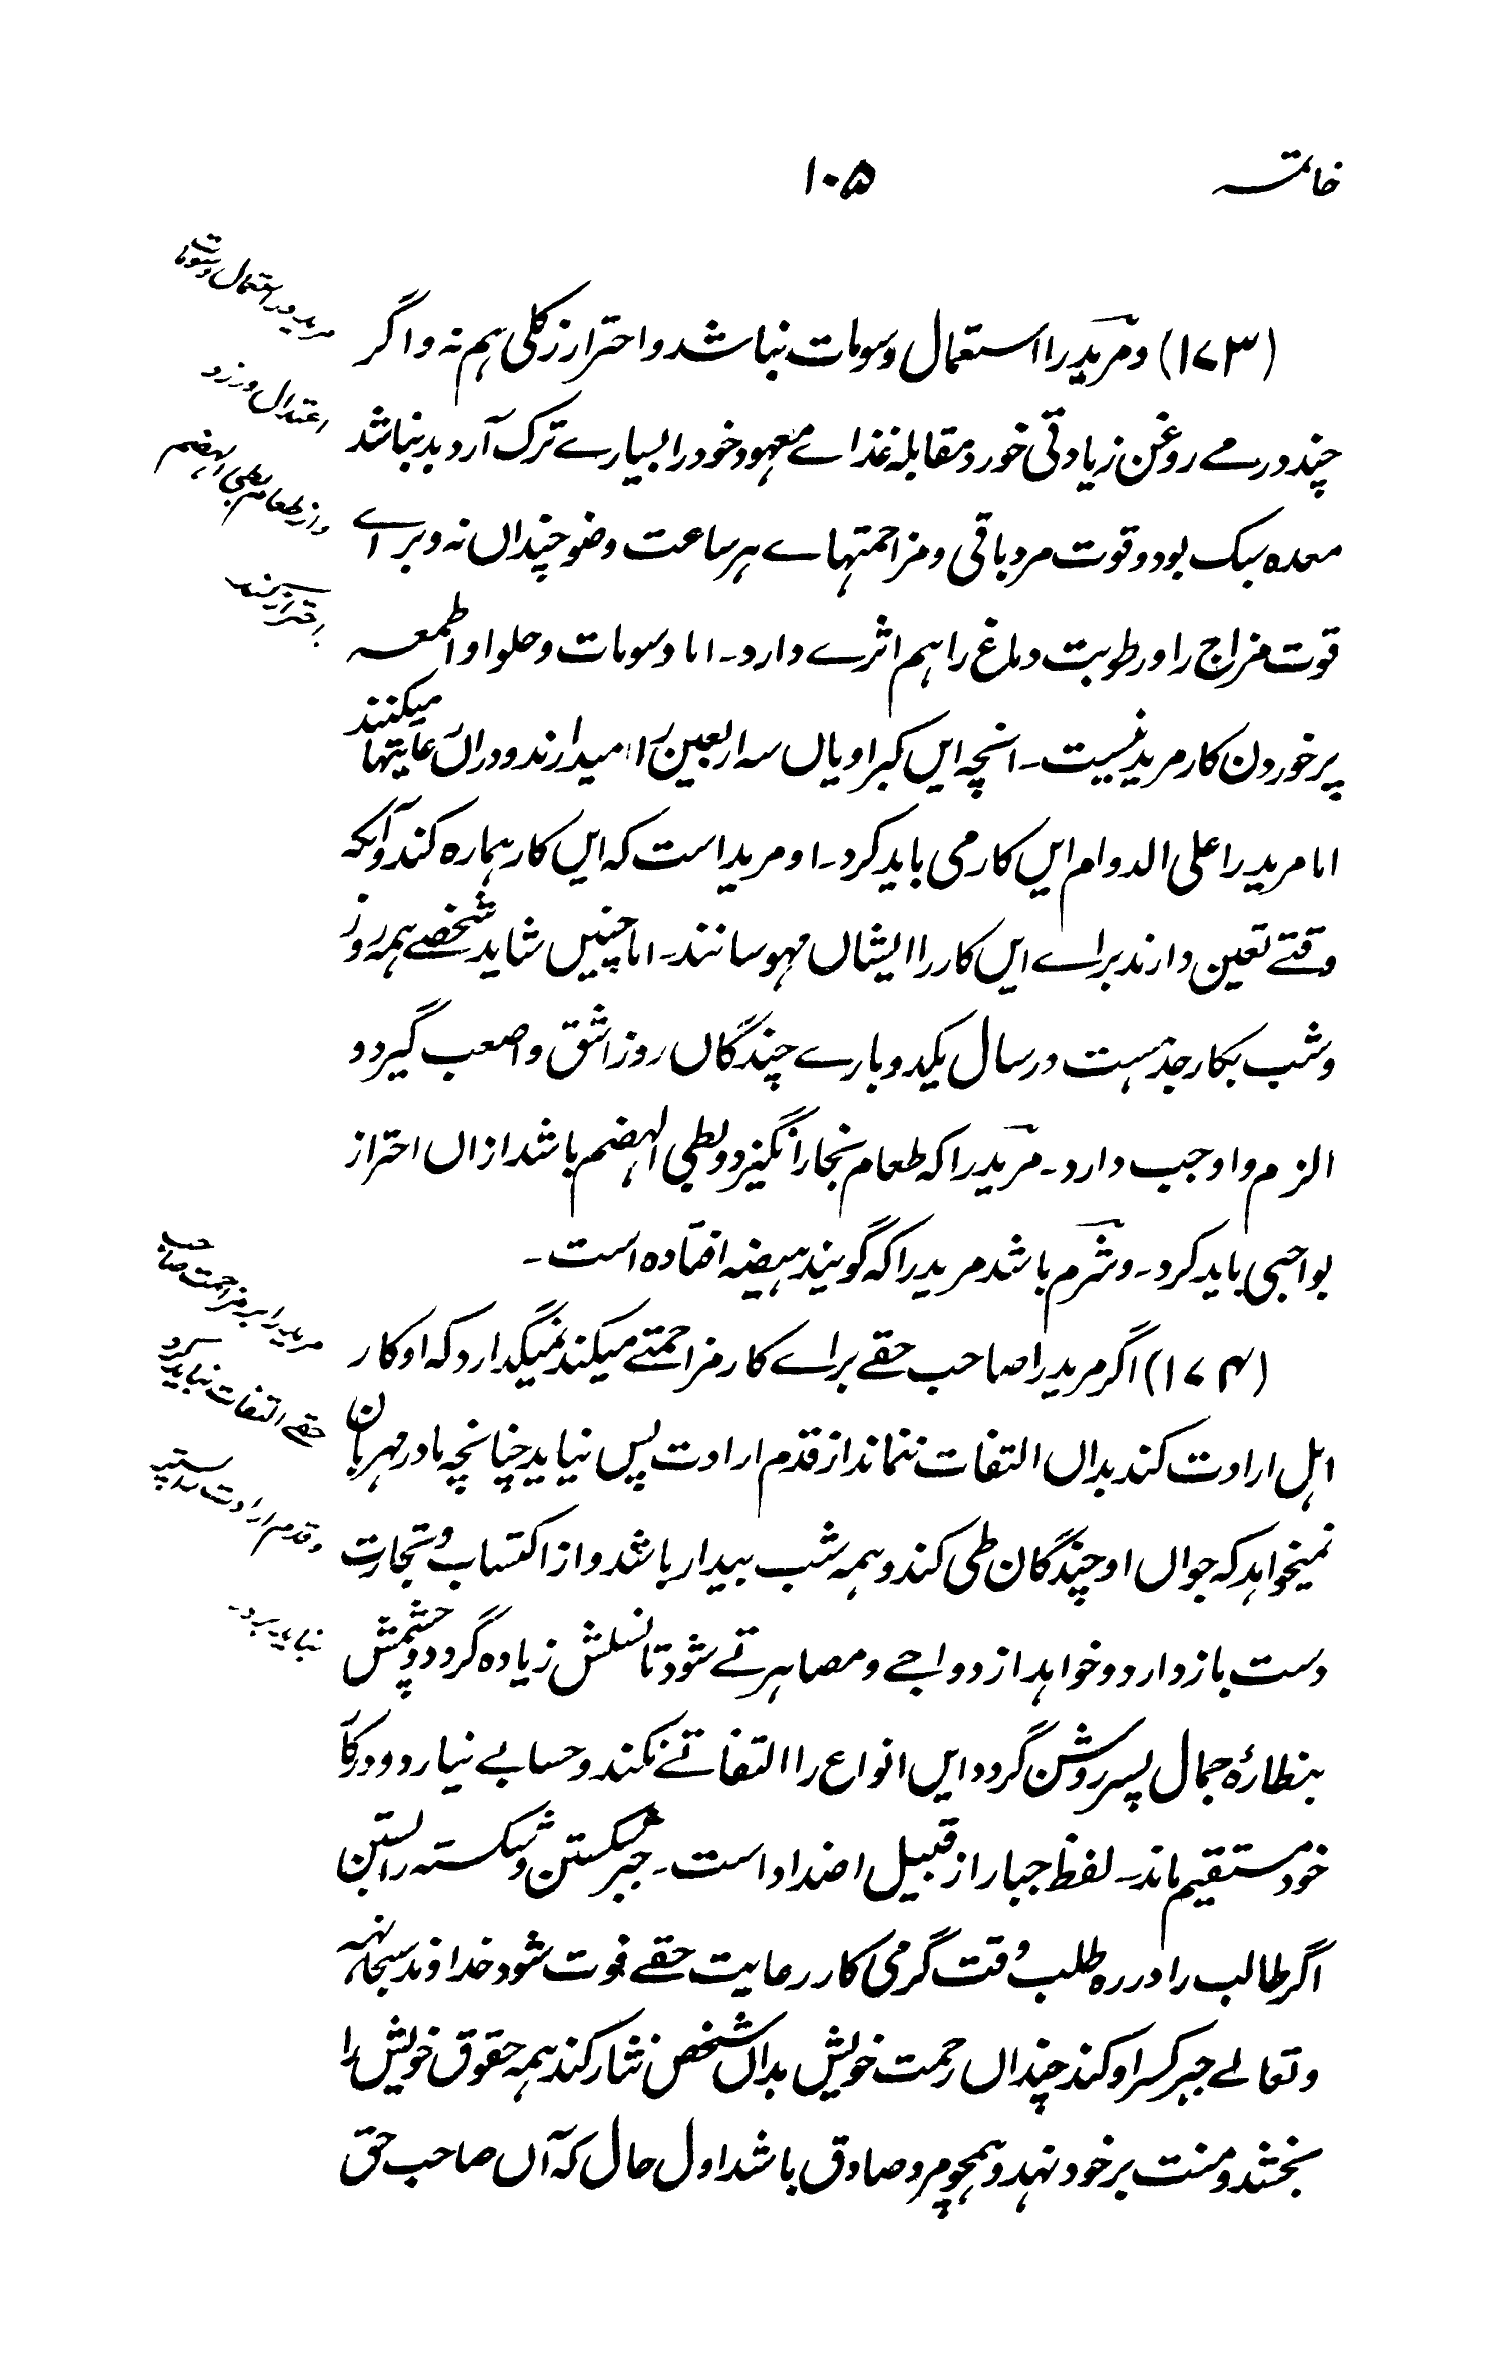 خاتمہ
۱۰۵
(۱۷۳) و مرید را استعمال دسومات نباشد و احتراز کلی ہم نہ و اگر
چند درمے روغن زیادتی خورد مقابلہ غذاے معہود خود را بسیارے ترک آرد بد نباشد
معدہ سبک بود و قوت مرد باقی و مزاحمتہاے ہر ساعت وضو چنداں نہ و براے
قوت مزاج را و رطوبت دماغ را ہم اثرے دارد۔ اما دسومات و حلوا و اطعمہ
پر خوردن کار مرید نیست۔ انچہ ایں کبراویاں سہ اربعین را میدارند و دراں عایتہا میکنند
اما مرید را علی الدوام ایں کار می باید کرد۔ او مرید است کہ ایں کار ہمارہ کند و آنکہ
وقتے تعین دارند براے ایں کار را ایشاں مہوسانند۔ اما چنیں شاید شخصے ہمہ روز
و شب بکار جد ہست در سال یکدو بارے چندگاں روز اشق و اصعب گیرد و
الزم و اوجب دارد۔ مرید را کہ طعام بخار انگیزد و بطی الہضم باشد ازاں احتراز
بواجبی باید کرد۔ و شرم باشد مرید را کہ گویند ہیضہ افتادہ است۔
(۱۷۴) اگر مرید را صاحب حقے براے کار مزاحمتے میکند نمیگذارد کہ او کار
اہل ارادت کند بداں التفات ننماند از قدم ارادت پس نیاید چنانچہ مادر مہربان
نمیخواہد کہ جواں او چندگان طی کند و ہمہ شب بیدار باشد و از اکتساب و تجارت
دست باز دارد و خواہد ازدواجے و مصاہرتے شود تا نسلش زیادہ گردد و چشمش
بنظارۂ جمال پسر روشن گردد ایں انواع را التفاتے نکند و حسابے نیارد و در کار
خود مستقیم ماند۔ لفظ جبار از قبیل اضداد است۔ جبر شکستن و شکستہ را بستن
اگر طالب را در رہ طلب وقت گرمی کار رعایت حقے فوت شود خداوند سبحانہ
و تعالے جبر کسر او کند چنداں رحمت خویش بداں شخص نثار کند ہمہ حقوق خویش را
بخشد و منت بر خود نہد و ہمچو مرد صادق باشد اول حال کہ آں صاحب حق
مرید در استعمال دسومات
اعتدال ورزد
و از طعام بطی الہضم
احتراز بیند
مرید را بر مزاحمت صاحب
حقے التفات نباید کرد
و قدم ارادت را پس
نباید برد۔